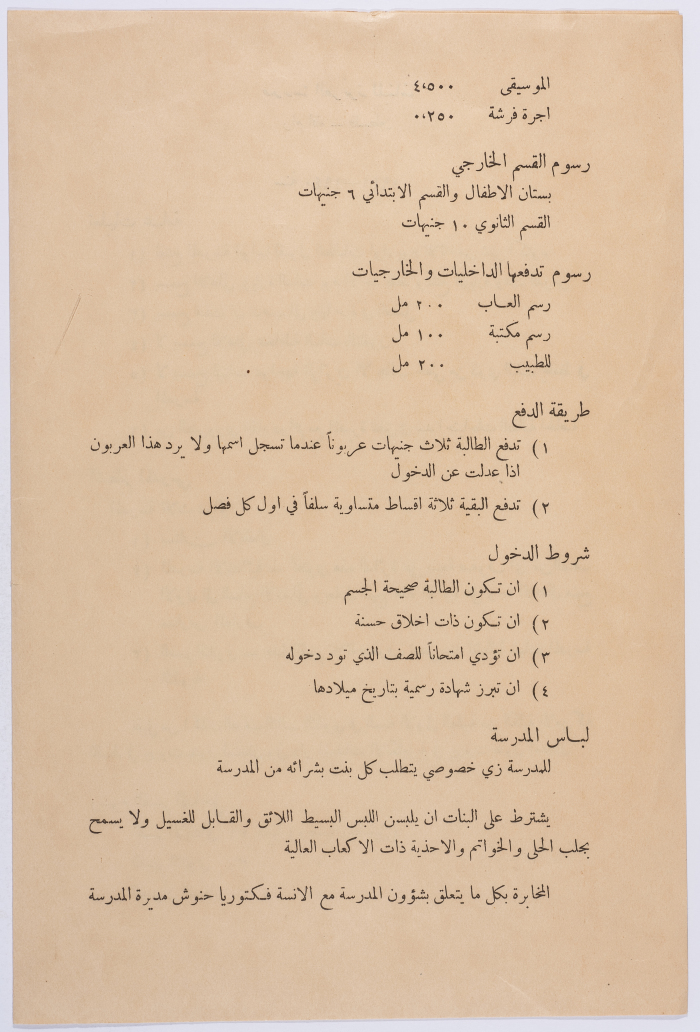 الموسيقى ٤،٥٠٠
اجرة فرشة ٠،٢٥٠
رسوم القسم الخارجي
بستان الاطفال والقسم الابتدائي ٦ جنيهات
القسم الثانوي ١٠ جنيهات
رسوم تدفعها الداخليات والخارجيات
رسم العاب ٢٠٠ مل
رسم مكتبة ١٠٠ مل
للطبيب ٢٠٠ مل
طريقة الدفع
١) تدفع الطالبة ثلاث جنيهات عربوناً عندما تسجل اسمها ولا يرد هذا العربون
اذا عدلت عن الدخول
٢) تدفع البقية ثلاثة اقساط متساوية سلفاً في اول كل فصل
شروط الدخول
١) ان تكون الطالبة صحيحة الجسم
٢) ان تكون ذات اخلاق حسنة
٣) ان تؤدي امتحاناً للصف الذي تود دخوله
٤) ان تبرز شهادة رسمية بتاريخ ميلادها
لباس المدرسة
للمدرسة زي خصوصي يتطلب كل بنت بشرائه من المدرسة
يشترط على البنات ان يلبسن اللبس البسيط اللائق والقابل للغسيل ولا يسمح
بجلب الحلى والخواتم والاحذية ذات الاكعاب العالية
المخابرة بكل ما يتعلق بشؤون المدرسة مع الانسة فكتوريا حنوش مديرة المدرسة